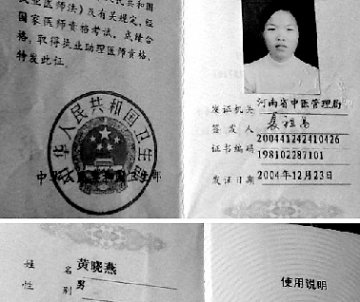 业医师法》及有关规定,经
国家医师资格考试,成绩合
格,取得执业助理医师资格,
特发此证。
中华人民共和国卫生部
发证机关 河南省中医管理局
签发人
证书编码 200441242410426
198102287101
发证日期 2004年12月23日
姓名 黄晓燕
性别 男
使用说明